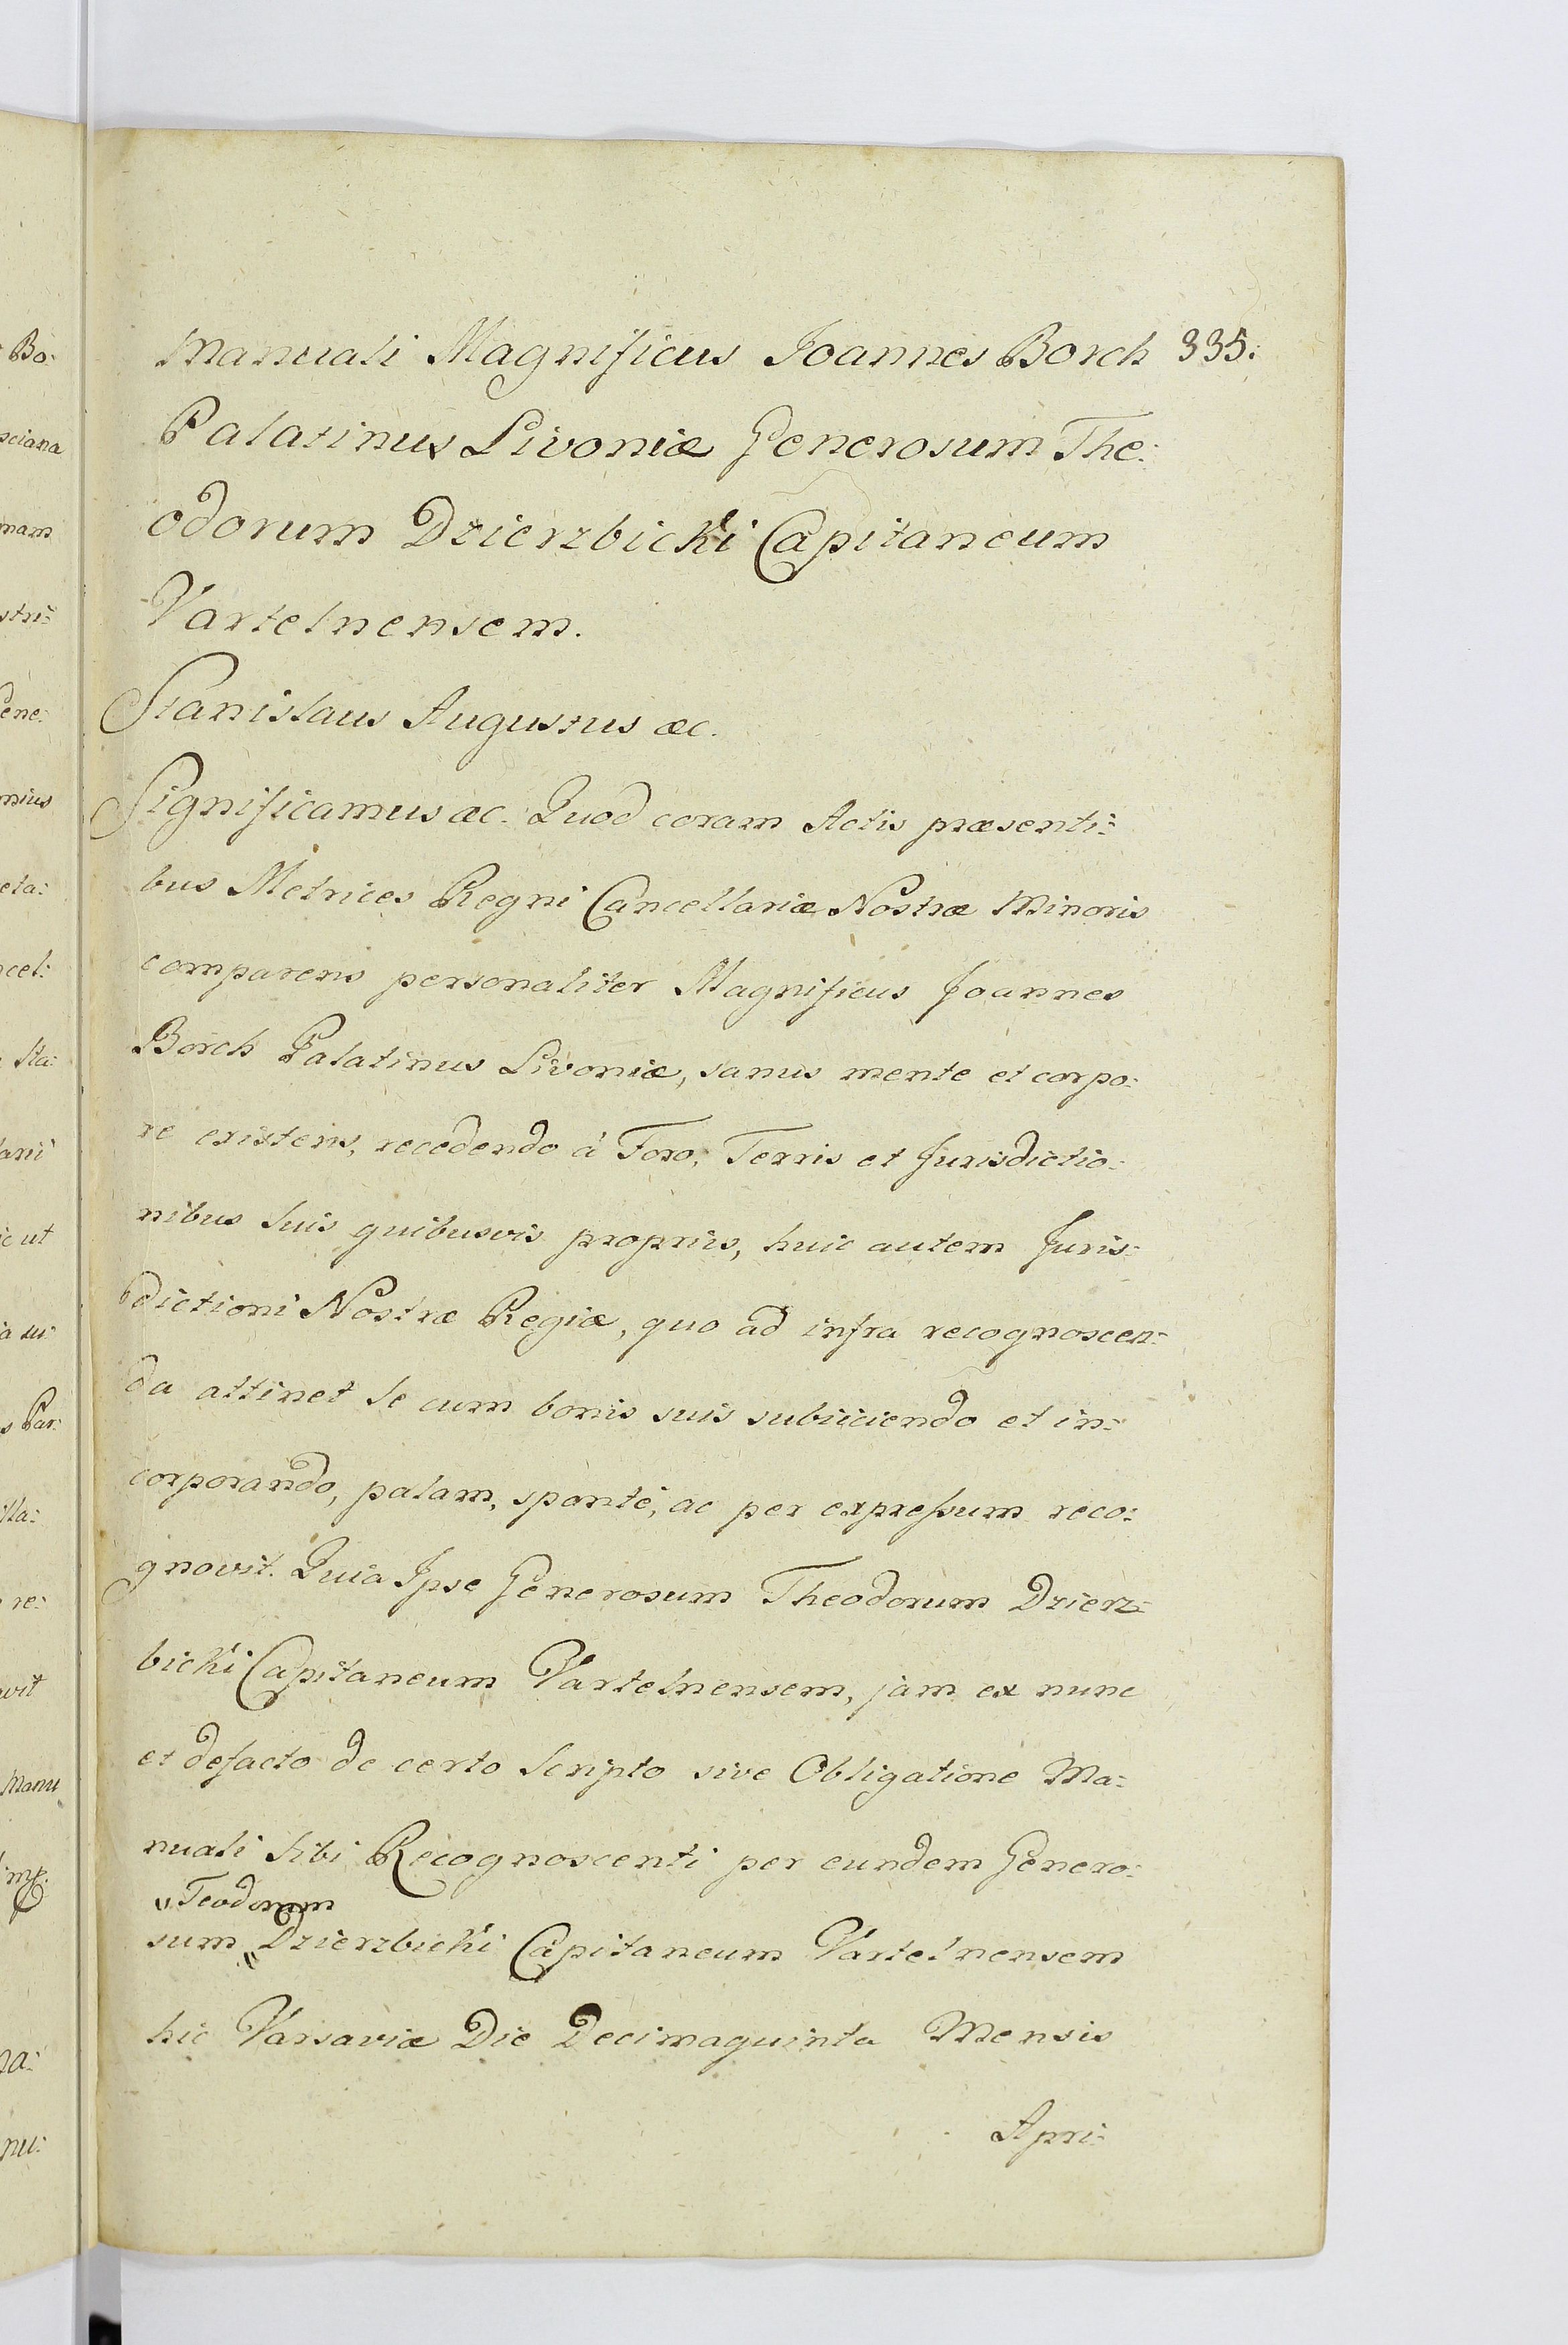 Manuali Magnificus Joannes Borch 335.
Palatinus Livoniæ Generosum The:
odorum Dzierzbicki Capitaneum
Vartelnensem.
Stanislaus Augustus æc.
Significamus æc. Quod coram Actis præsenti:
bus Metrices Regni Cancellariæ Nostræ Minoris
comparens personaliter Magnificus Joannes
Borch Palatinus Livoniæ, sanus mente et corpo:
re existens, recedendo à Foro, Terris et Jurisdictio:
nibus suis quibusvis propriis, huic autem Juris:
dictioni Nostræ Regiæ, quo ad infra recognoscen:
da attinet se cum bonis suis subiiciendo et in:
corporando, palam, sponté, ac per expressum reco:
gnovit. Quia Ipse Generosum Theodorum Dzierz:
bicki Capitaneum Vartelnensem, jam ex nunc
et defacto de certo Scripto sive Obligatione Ma:
nuali sibi Recognoscenti per eundem Genero:
"Teodorum
sum "Dzierzbicki Capitaneum Vartelnensem
hic Varsaviæ Die Decimaquinta Mensis
Apri:
Bo:
sciana
mam
stri:
Gene:
mius
ela:
cel:
Sta:
lani
ic ut
ia su:
s Par:
illa:
re:
vit
Manu
mp.
na:
nu: